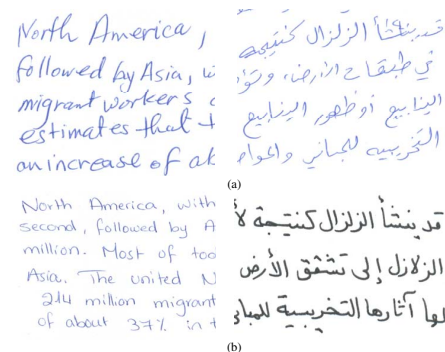 North America,
followed by Asia, wi
migrant workers
estimates that t
an increase of ab
قد ينشأ الزلزال كنتيجة
في طبقات الأرض، وتؤ
الينابيع أو ظهور الينابيع
التخريبية للمباني والحوا
(a)
North America, with
second, followed by A
million. Most of too
Asia. The united N
214 million migrant
of about 37% in t
قد ينشأ الزلزال كنتيجة لأ
الزلازل إلى تشقق الأرض
لها آثارها التخريبية للمباني
(b)